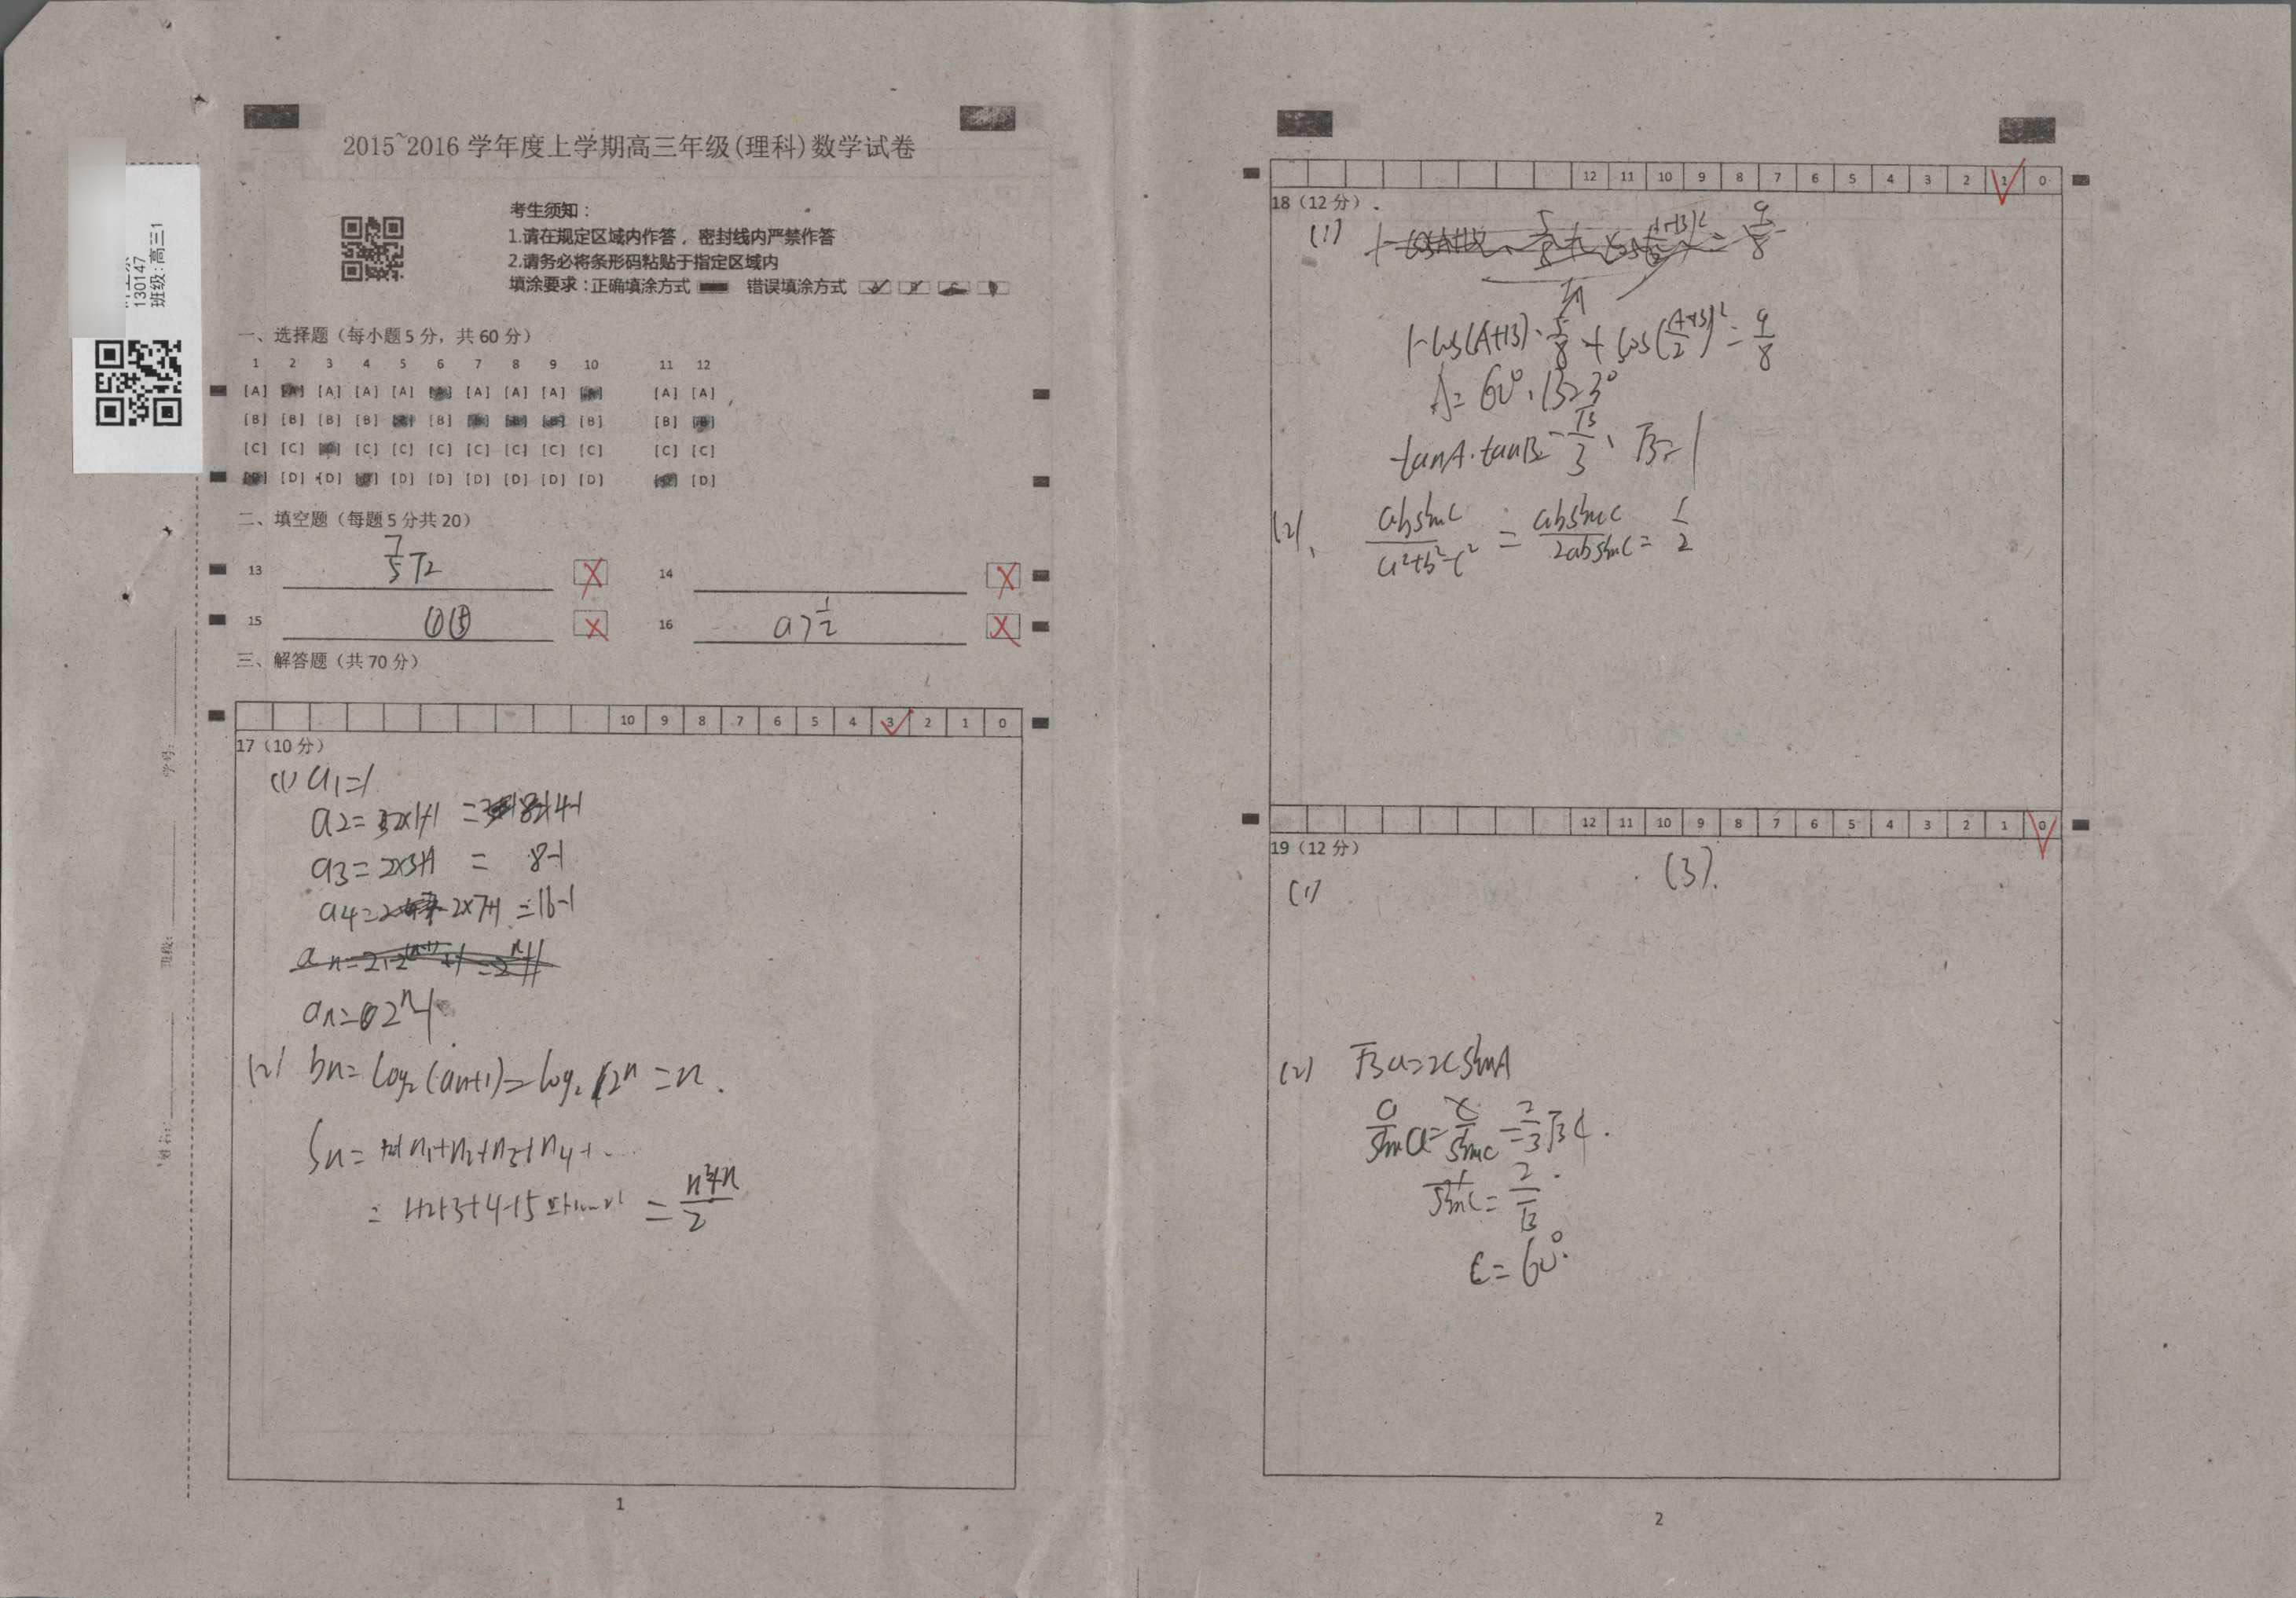 130147
班级:高三1
2015~2016学年度上学期高三年级(理科)数学试卷
考生须知：
1.请在规定区域内作答，密封线内严禁作答
2.请务必将条形码粘贴于指定区域内
填涂要求:正确填涂方式 错误填涂方式
一、选择题（每小题5分，共60分）
1 2 3 4 5 6 7 8 9 10 11 12
[A] [A] [A] [A] [A] [A] [A] [A] [A] [A] [A] [A]
[B] [B] [B] [B] [B] [B] [B] [B] [B] [B] [B] [B]
[C] [C] [C] [C] [C] [C] [C] [C] [C] [C] [C] [C]
[D] [D] [D] [D] [D] [D] [D] [D] [D] [D] [D] [D]
二、填空题（每题5分共20）
13 7/5 π2
14
15 ①③
16 a>1/2
三、解答题（共70分）
10 9 8 7 6 5 4 3 2 1 0
17（10分）
(1) a1=1
a2=2x1+1 = 4-1
a3=2x3+1 = 8-1
a4=2x7+1 =16-1
an=2^n-1
(2) bn=log2(an+1)=log2 2^n=n.
Sn= n1+n2+n3+n4+...
= 1+2+3+4+5 = (n²+n)/2
学号:
班级:
姓名:
1
12 11 10 9 8 7 6 5 4 3 2 1 0
18（12分）.
(1)
1-cos(A+B)·5/8+cos(A+B/2)²=9/8
A=60°,B=3°
tanA·tanB=√3/3·√3=1
(2)、absinC/a²+b²-c² = absinC/2absinC=1/2
12 11 10 9 8 7 6 5 4 3 2 1 0
19（12分）
(3).
(1)
(2) √3a=2csinA
a/sinA=c/sinC=2/3√3c.
1/sinC=2/√3
C=60°.
2